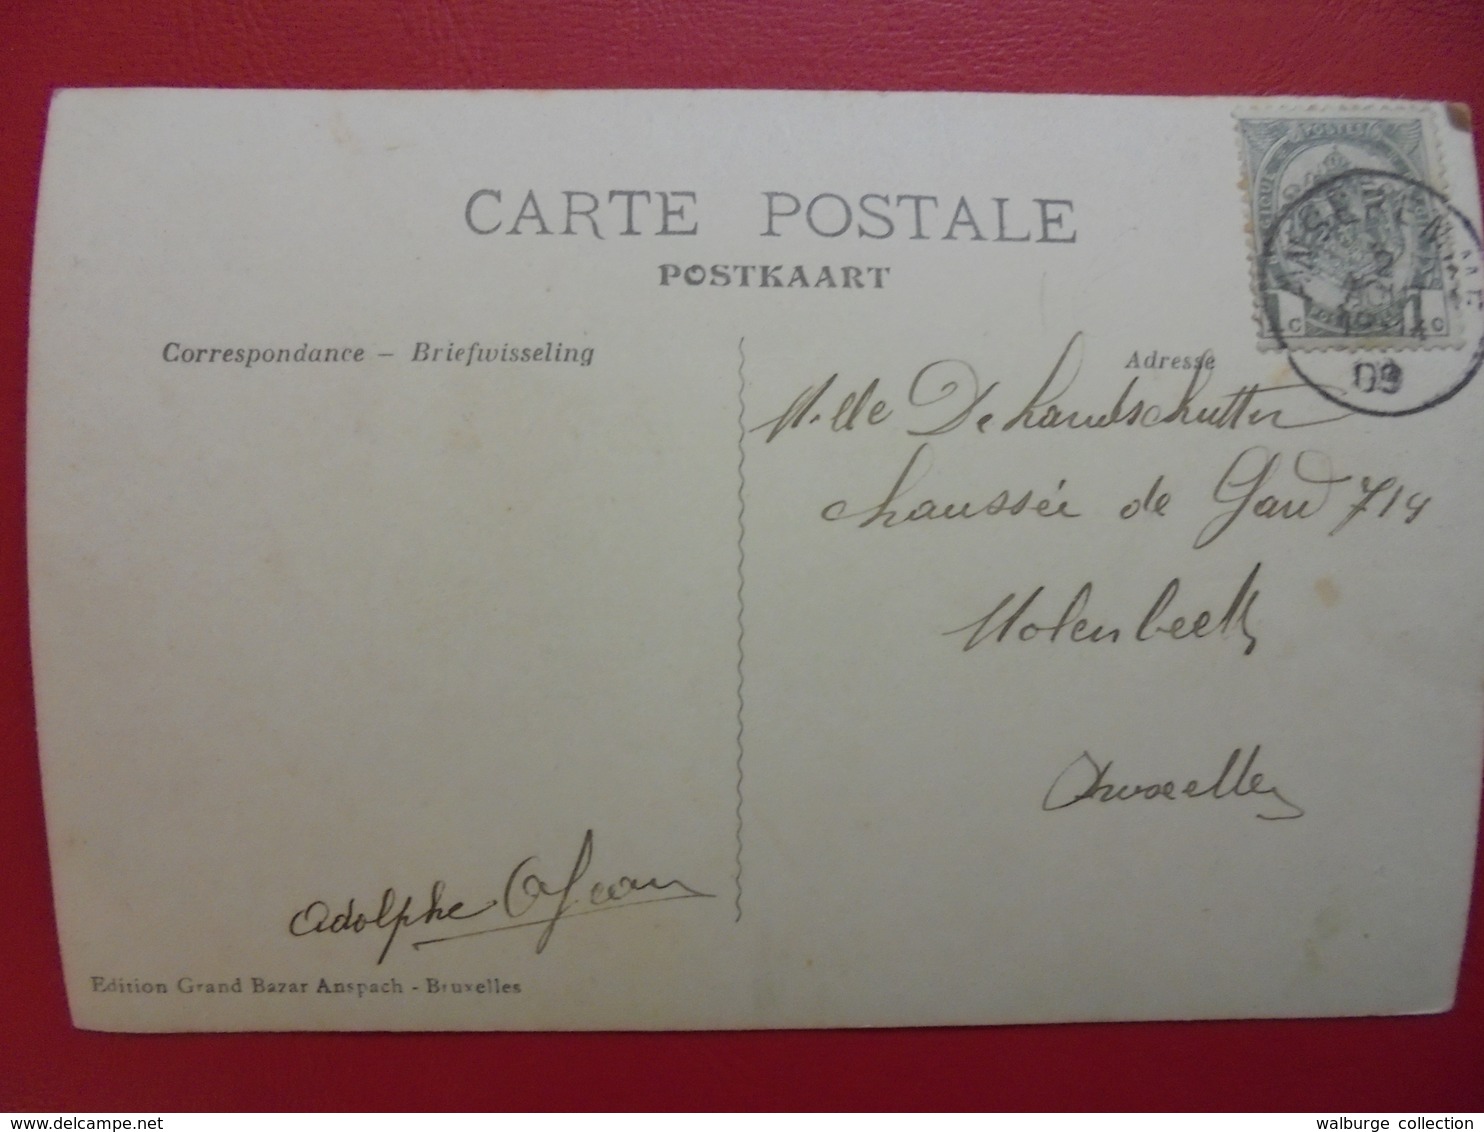 CARTE POSTALE
POSTKAART
Correspondance – Briefwisseling
Adresse
POSTES
1 c 1 c
09
M.lle De handschutter
chaussée de Gand 714
Molenbeek
Bruxelles
Adolphe
Edition Grand Bazar Anspach - Bruxelles
delcampe.net
walburge collection